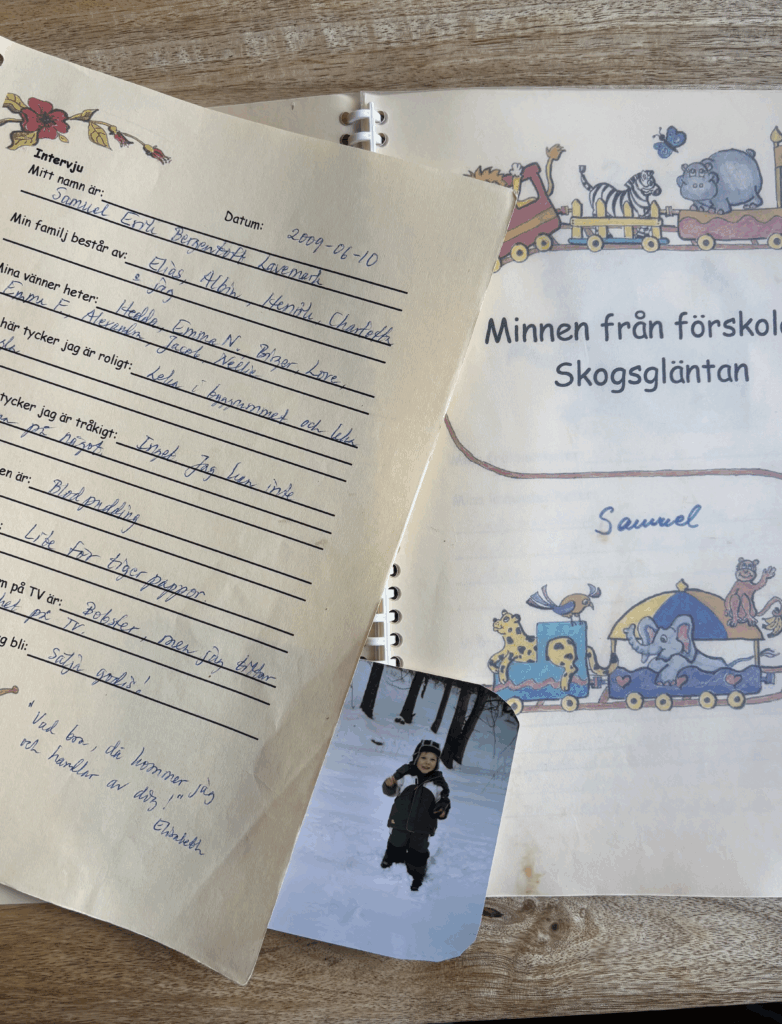 Intervju
Mitt namn är: Samuel Erik Bergentoft Lavemark
Datum: 2009-06-10
Min familj består av: Elias, Albin, Henrik, Charlotth
& jag
Mina vänner heter: Hedda, Emma N. Birger, Love,
Emma E, Alexander, Jacob
här tycker jag är roligt: Leka i byggrummet och leka
tycker jag är tråkigt: Inget Jag kan inte
på något
en är: Blodpudding
Lite för tiger pappor
m på TV är: Bobster, men jag tittar
på TV.
g bli: sälja godis!
"Vad bra, då kommer jag
och handlar av dig!"
Elisabeth
Minnen från förskola
Skogsgläntan
Samuel